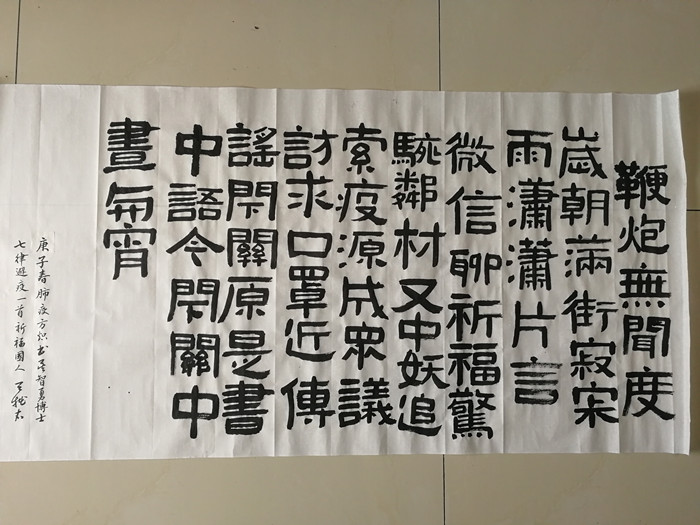 鞭炮無聞度
歲朝滿街寂寞
雨瀟瀟片言
微信聊祈福驚
鄰村又中妖追
索疫源成眾議
訪求口罩近傳
謠閉關原是書
中語今閉關中
晝每宵
庚子春肺疫方炽書智勇博士
七律避疫一首祈福國人